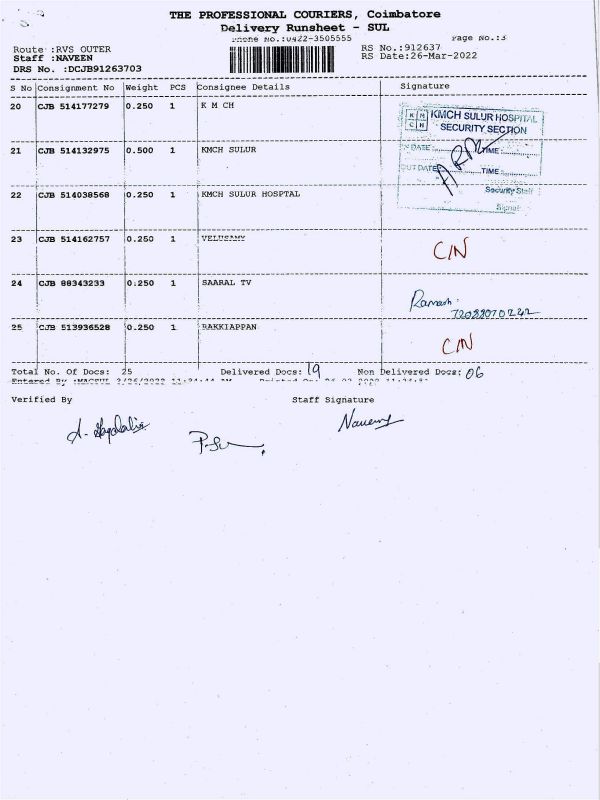 THE PROFESSIONAL COURIERS, Coimbatore
Delivery Runsheet - SUL
Phone No.:0422-3505555 Page No.:3
Route :RVS OUTER RS No.:912637
Staff :NAVEEN RS Date:26-Mar-2022
DRS No. :DCJB91263703
S No Consignment No Weight PCS Consignee Details Signature
20 CJB 514177279 0.250 1 K M CH
KMCH SULUR HOSPITAL
SECURITY SECTION
21 CJB 514132975 0.500 1 KMCH SULUR
IN DATE TIME
OUT DATE TIME
22 CJB 514038568 0.250 1 KMCH SULUR HOSPTAL
Security Staff
23 CJB 514162757 0.250 1 VELUSAMY C/N
24 CJB 88343233 0.250 1 SAARAL TV
Ramesh
25 CJB 513936528 0.250 1 RAKKIAPPAN C/N
Total No. Of Docs: 25 Delivered Docs: 19 Non Delivered Docs: 06
Verified By Staff Signature